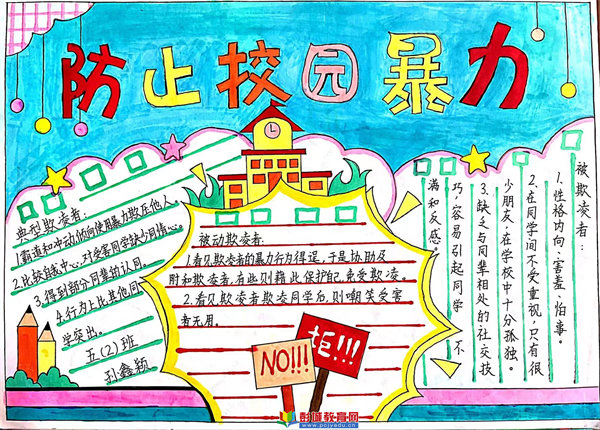 防止校园暴力
典型欺凌者:
1.霸道和冲动,倾向使用暴力欺压他人。
2.比较自我中心,对受害同学缺少同情心。
3.得到部分同辈的认同
4.行为上比其他同
学突出。
五(2)班
孙鑫颖
被动欺凌者:
1.看见欺凌者的暴力行为得逞,于是协助及
附和欺凌者,有些则藉此保护自己,免受欺凌.
2.看见欺凌者欺凌同学后,则嘲笑受害
者无用。
NO!!!
拒!!!
被欺凌者:
1.性格内向、害羞、怕事。
2.在同学间不受重视,只有很
少朋友,在学校中十分孤独。
3.缺乏与同辈相处的社交技
巧,容易引起同学 不
满和反感。
彭城教育网
www.pcjyedu.cn